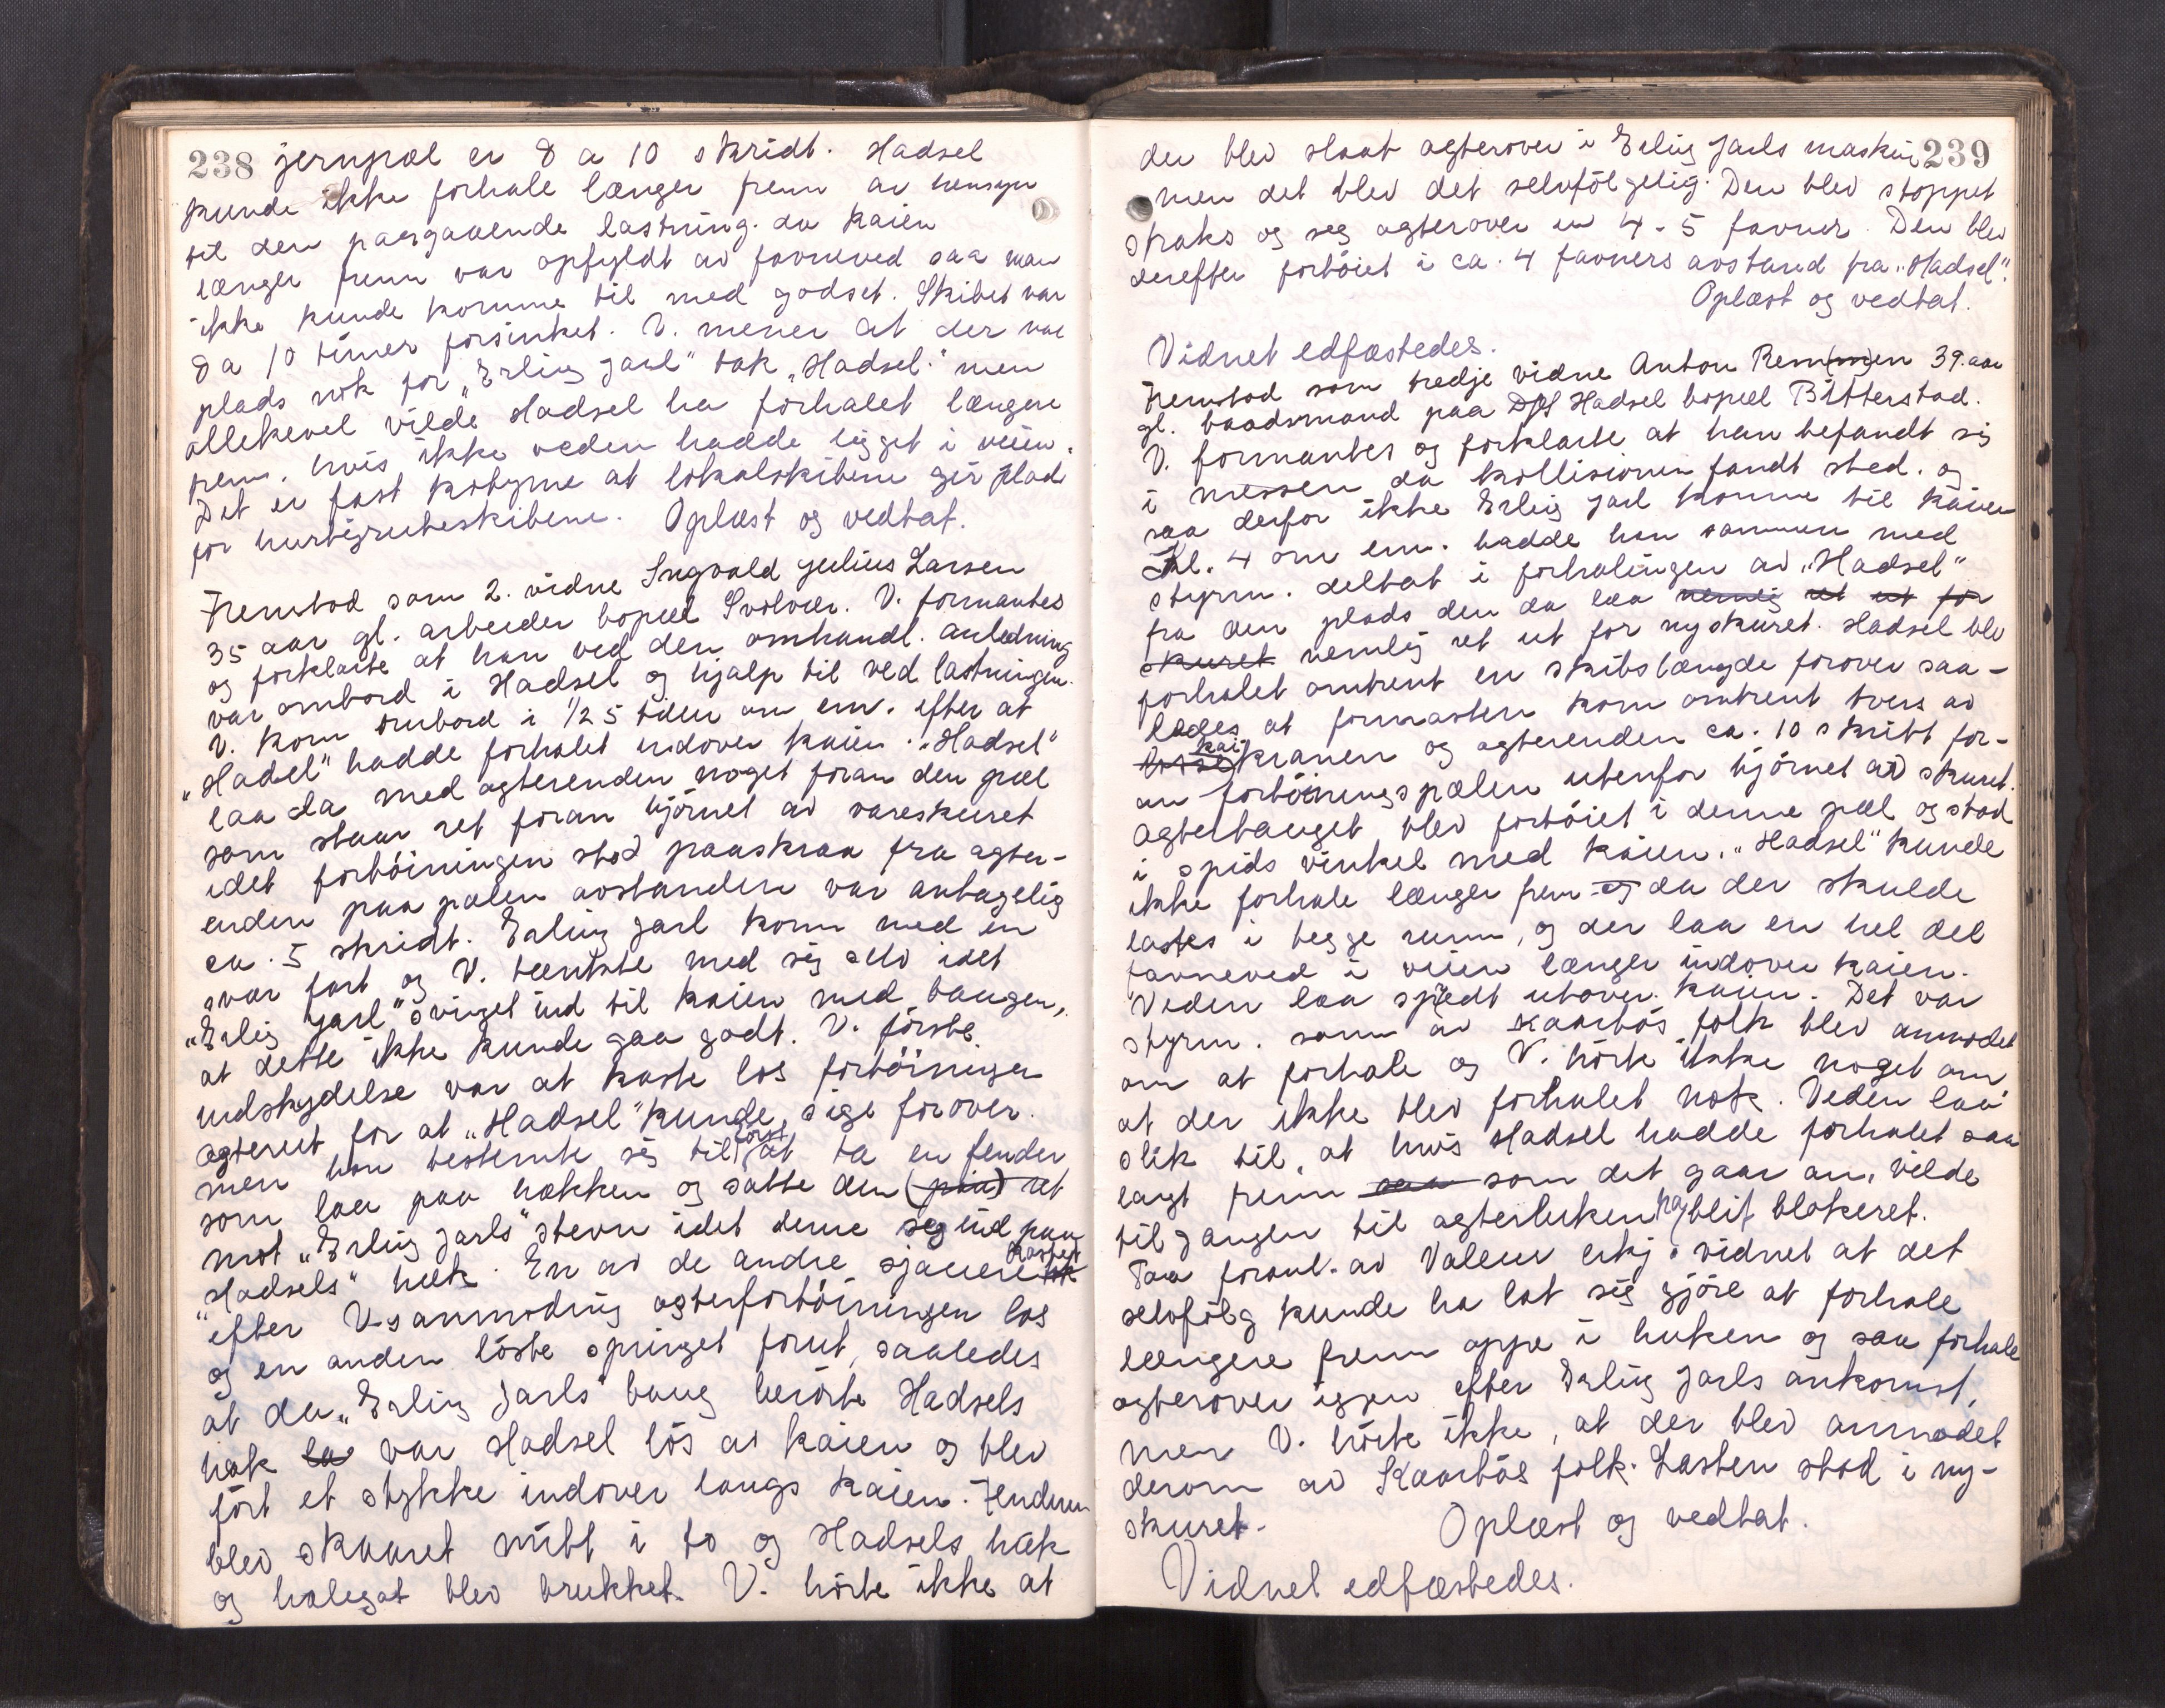 238 jernpæl er 8 a 10 skridt. Hadsel
kunde ikke forhale længer frem av hensyn
til den paagaaende lastning. da kaien
længer frem var opfyldt av favneved saa man
ikke kunde komme til med godset. Skibet var
8 a 10 timer forsinket. V. mener at der var
plads nok for „Erling Jarl" bak „Hadsel." men
allikevel vilde Hadsel ha forhalet længere
frem. hvis ikke veden hadde ligget i veien.
Det er fast kotyme at lokalskibene gir plads
for hurtigruteskibene. Oplæst og vedtat.
Fremstod som 2. vidne Ingvald Julius Larsen
35 aar gl. arbeider bopæl Svolvær. V. formantes
og forklarte at han ved den omhandl. anledning
var ombord i Hadsel og hjalp til ved lastningen.
V. kom ombord i 1/2 5 tiden om em. efter at
„Hadsel" hadde forhalet indover kaien. „Hadsel"
laa da med agterenden noget foran den pæl
som staar ret foran hjörnet av vareskuret
idet fortöiningen stod paaskraa fra agter-
enden paa pælen avstanden var antagelig
ca. 5 skridt. Erling Jarl kom med en
svær fart og V. tænkte med sig selv idet
„Erling Jarl" svinget ind til kaien med baugen,
at dette ikke kunde gaa godt. V. förste
indskydelse var at kaste los fortöiningen
agterut for at „Hadsel" kunde sige forover.
men han bestemte sig til först at ta en fender
som laa paa hækken og satte den (paa) ret
mot „Erling Jarls" stevn idet denne seg ind paa
„Hadsels" hæk. En av de andre sjauere kastet
efter V.s anmodning agterfortöiningen los
og en anden löste springet forut, saaledes
at da „Erling Jarls" baug berörte Hadsels
hæk la var Hadsel lös av kaien og blev
fört et stykke indover langs kaien. Fenderen
blev skaaret midt i to og Hadsels hæk
og halegat blev brukket. V. hörte ikke at
239
der blev slaat agterover i Erling Jarls maskin
men det blev det selvfölgelig. Den blev stoppet
straks og seg agterover en 4-5 favner. Den blev
derefter fortöiet i ca. 4 favners avstand fra „Hadsel".
Oplæst og vedtat.
Vidnet edfæstedes.
Fremstod som tredje vidne Anton Rem(m)en 39. aar
gl. baadsmand paa D/S Hadsel bopæl Bitterstad.
V. formantes og forklarte at han befandt sig
i messen da kollisionen fandt sted. og
saa derfor ikke Erling Jarl komme til kaien
Kl. 4 om em. hadde han sammen med
styrm. deltat i forhalingen av „Hadsel"
fra den plads den da laa nemlig ret ut for
skuret nemlig ret ut for nyskuret. Hadsel blev
forhalet omtrent en skibslængde forover saa-
ledes at formasten kom omtrent tvers av
kaikranen og agterenden ca. 10 skritt for-
an fortöiningspælen utenfor hjörnet av skuret.
Agtertauget blev fortöiet i denne pæl og stod
i spids vinkel med kaien. „Hadsel" kunde
ikke forhale længer frem og da der skulde
lastes i begge rumm, og der laa en hel del
favneved i veien længer indover kaien.
Veden laa spredt utover kaien. Det var
styrm. som av Kaarbös folk blev anmodet
om at forhale og V. hörte ikke noget om
at der ikke blev forhalet nok. Veden laa
slik til, at hvis Hadsel hadde forhalet saa
langt frem saa som det gaar an, vilde
tilgangen til agterluken ha blit blokeret.
Paa foranl. av Valeur erkj. vidnet at det
selvfölg kunde ha lat sig gjöre at forhale
længere frem oppe i huken og saa forhale
agterover igjen efter Erling Jarls ankomst,
men V. hörte ikke, at der blev anmodet
derom av Kaarbös folk. Lasten stod i ny-
skuret. Oplæst og vedtat.
Vidnet edfæstedes.